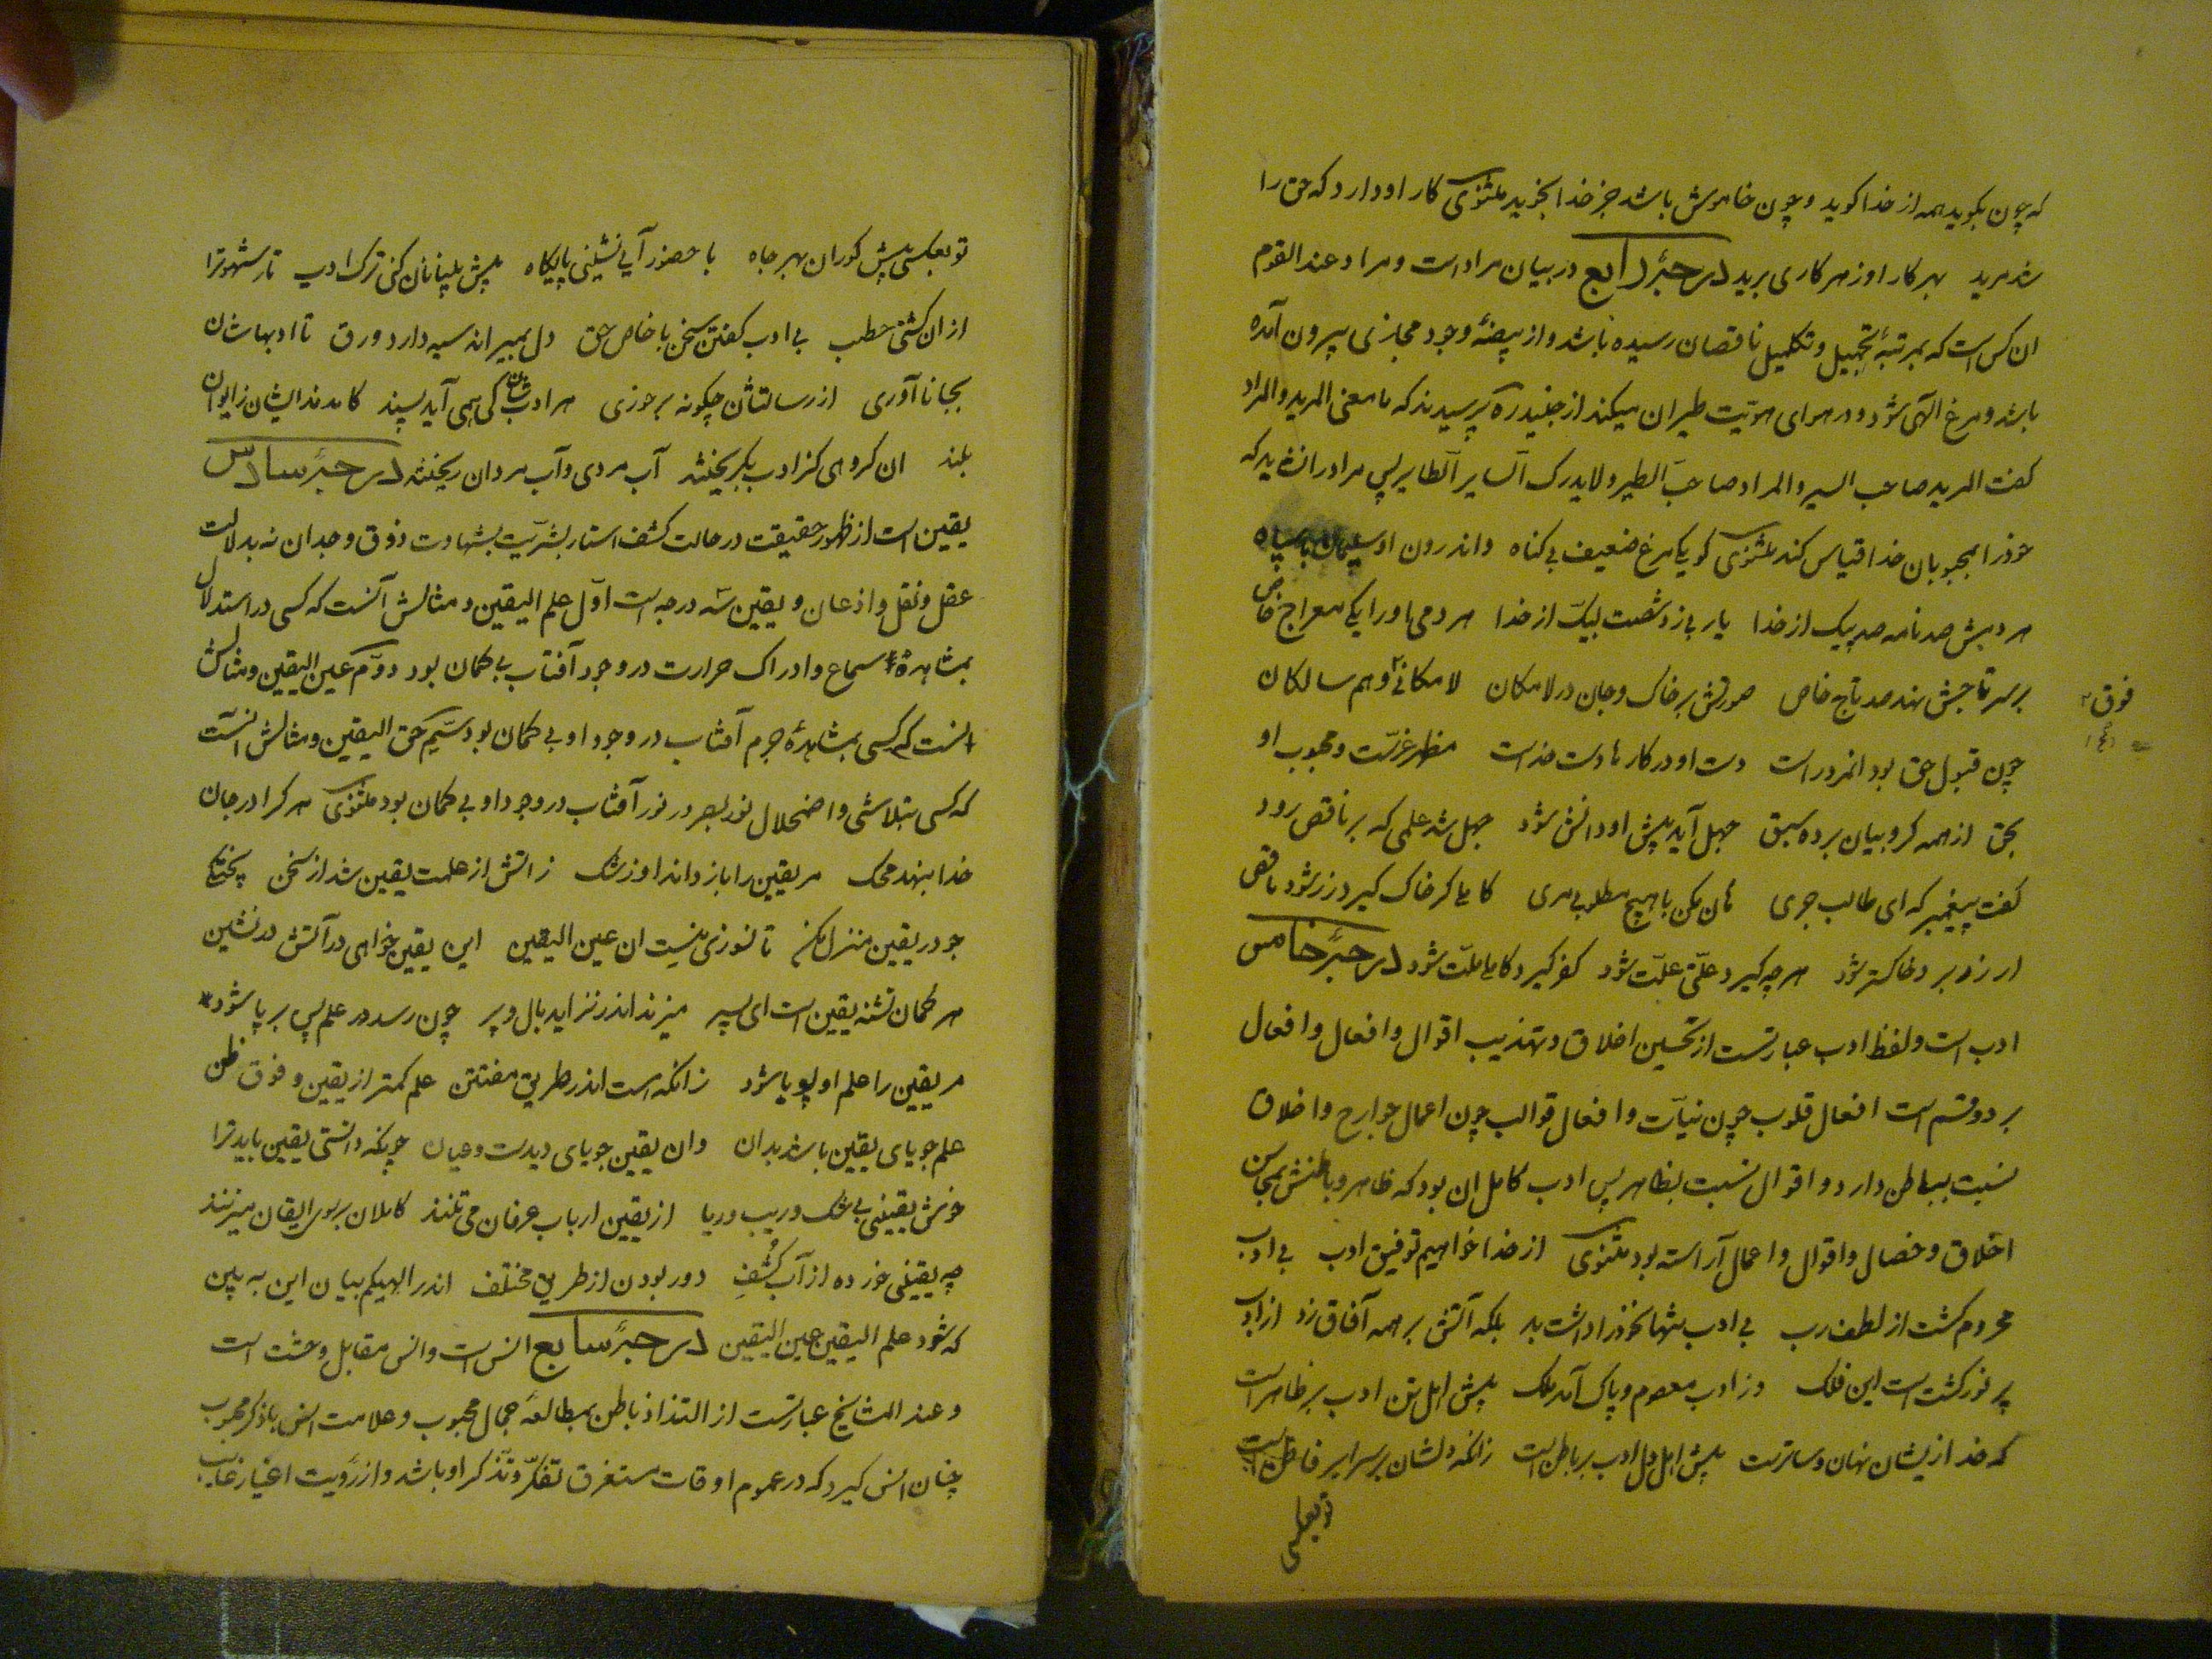 که چون بکوید همه از خدا کوید و چون خاموش باشد جز خدا نجوید مثنوی کار او دارد که حق را
شد مرید بهر کار او ز هر کاری برید درجۀ رابع در بیان مراد است و مراد عند القوم
ان کس است که بمرتبۀ تجهیل و تکمیل ناقصان رسیده باشد و از بیضۀ وجود مجازی بیرون آمده
باشد و مرغ الهی شود و در هوای هویّت طیران میکند از جنید ره پرسیدند که ما معنی المرید و المراد
کفت المرید صاحب السیر و المراد صاحب الطیر و لا یدرک السایر الطایر پس مراد را نشاید که
خود را بمحبوبان خدا قیاس کند مثنوی کو یکی مرغ ضعیف بی کناه و اندرون او سلیمان با سپاه
هر دمش صد نامه صد پیک از خدا یا ربی زو شصت لبیک از خدا هر دمی او را یکی معراج خاص
بر سر تاجش نهد صد تاج خاص صورتش بر خاک و جان در لامکان لامکانی وهم سالکان
فوق
چون قبول حق بود انمرد راست دست او در کارها دست خداست مظهر عزّتست و محبوب او
بحق از همه کروبیان برده سبق جهل آید پیش او دانش شود جهل شد علمی که بر ناقص رود
کفت پیغمبر که ای طالب جری هان مکن با هیچ مطلوبی مری کاملی کر خاک کیرد زر شود ناقص
ار زر برد خاکستر شود هر چه کیرد علّتی علّت شود کفر کیرد کاملی ملّت شود درجۀ خامس
ادب است و لفظ ادب عبارتست از تحسین اخلاق و تهذیب اقوال و افعال و افعال
بر دو قسم است افعال قلوب چون نیّات و افعال قوالب چون اعمال جوارح و اخلاق
نسبت بباطن دارد و اقوال نسبت بظاهر پس ادب کامل ان بود که ظاهر و باطنش بمحاسن
اخلاق و خصال و اقوال و اعمال آراسته بود مثنوی از خدا خواهیم توفیق ادب بی ادب
محروم کشت از لطف رب بی ادب تنها نه خود را داشت بد بلکه آتش بر همه آفاق زد از ادب
پر نور کشت است این فلک وز ادب معصوم و پاک آمد ملک پیش اهل تن ادب بر ظاهر است
که خدا زیشان نهان و ساترست پیش اهل دل ادب بر باطن است زانکه دلشان بر سرایر فاطن است
تو بعکسی
تو بعکسی پیش کوران بهر جاه با حضور آیی نشینی پایکاه پیش بینایان کنی ترک ادب نار شهوت را
از ان کشتی حطب بی ادب کفتن سخن با خاص حق دل بمیراند سیه دارد ورق تا ادبهاشان
بجا نا آوری از رسالتشان چکونه بر خوری هر ادبشان کی همی آید پسند کامدند ایشان ز ایوان
بلند ان کروهی کز ادب بکریختند آب مردی و آب مردان ریختند درجۀ سادس
یقین است از ظهور حقیقت در حالت کشف استار بشریّت بشهادت ذوق و وجدان نه بدلالت
عقل و نقل و اذعان و یقین سه درجه است اوّل علم الیقین و مثالش آنست که کسی در استدلال
بمشاهدۀ سماع و ادراک حرارت در وجود آفتاب بی کمان بود دوّم عین الیقین و مثالش
انست که کسی بمشاهدۀ جرم آفتاب در وجود او بی کمان بود سیّم حق الیقین و مثالش انست
که کسی بتلاشی و اضمحلال نور بصر در نور آفتاب در وجود او بی کمان بود مثنوی هر کرا در جان
خدا بنهد محک مر یقین را باز داند او ز شک ز آتش از علمت یقین شد از سخن پختکی
جو در یقین منزل مکن تا نسوزی نیست ان عین الیقین این یقین خواهی در آتش در نشین
هر کمان تشنه یقین است ای پسر میزند اندر تزاید بال و پر چون رسد در علم پس بر پا شود
مر یقین را علم او پویا شود زانکه است اندر طریق مفتتن علم کمتر از یقین و فوق ظن
علم جویای یقین باشد بدان وان یقین جویای دیدست و عیان چونکه دانستی یقین باید ترا
خوش یقینی بی شک و ریب و ریا از یقین ارباب عرفان می تنند کاملان بر بوی ایقان میزنند
چه یقینی خورده از آب کُشُف دور بودن از طریق مختلف اندر الهیکم بیان این به بین
که شود علم الیقین عین الیقین درجۀ سابع انس است و انس مقابل وحشت است
و عند المشایخ عبارتست از التذاذ باطن بمطالعۀ جمال محبوب و علامت انس با ذکر محبوب
چنان انس کیرد که در عموم اوقات مستغرق تفکّر و تذکر او باشد و از رؤیت اغیار غایب